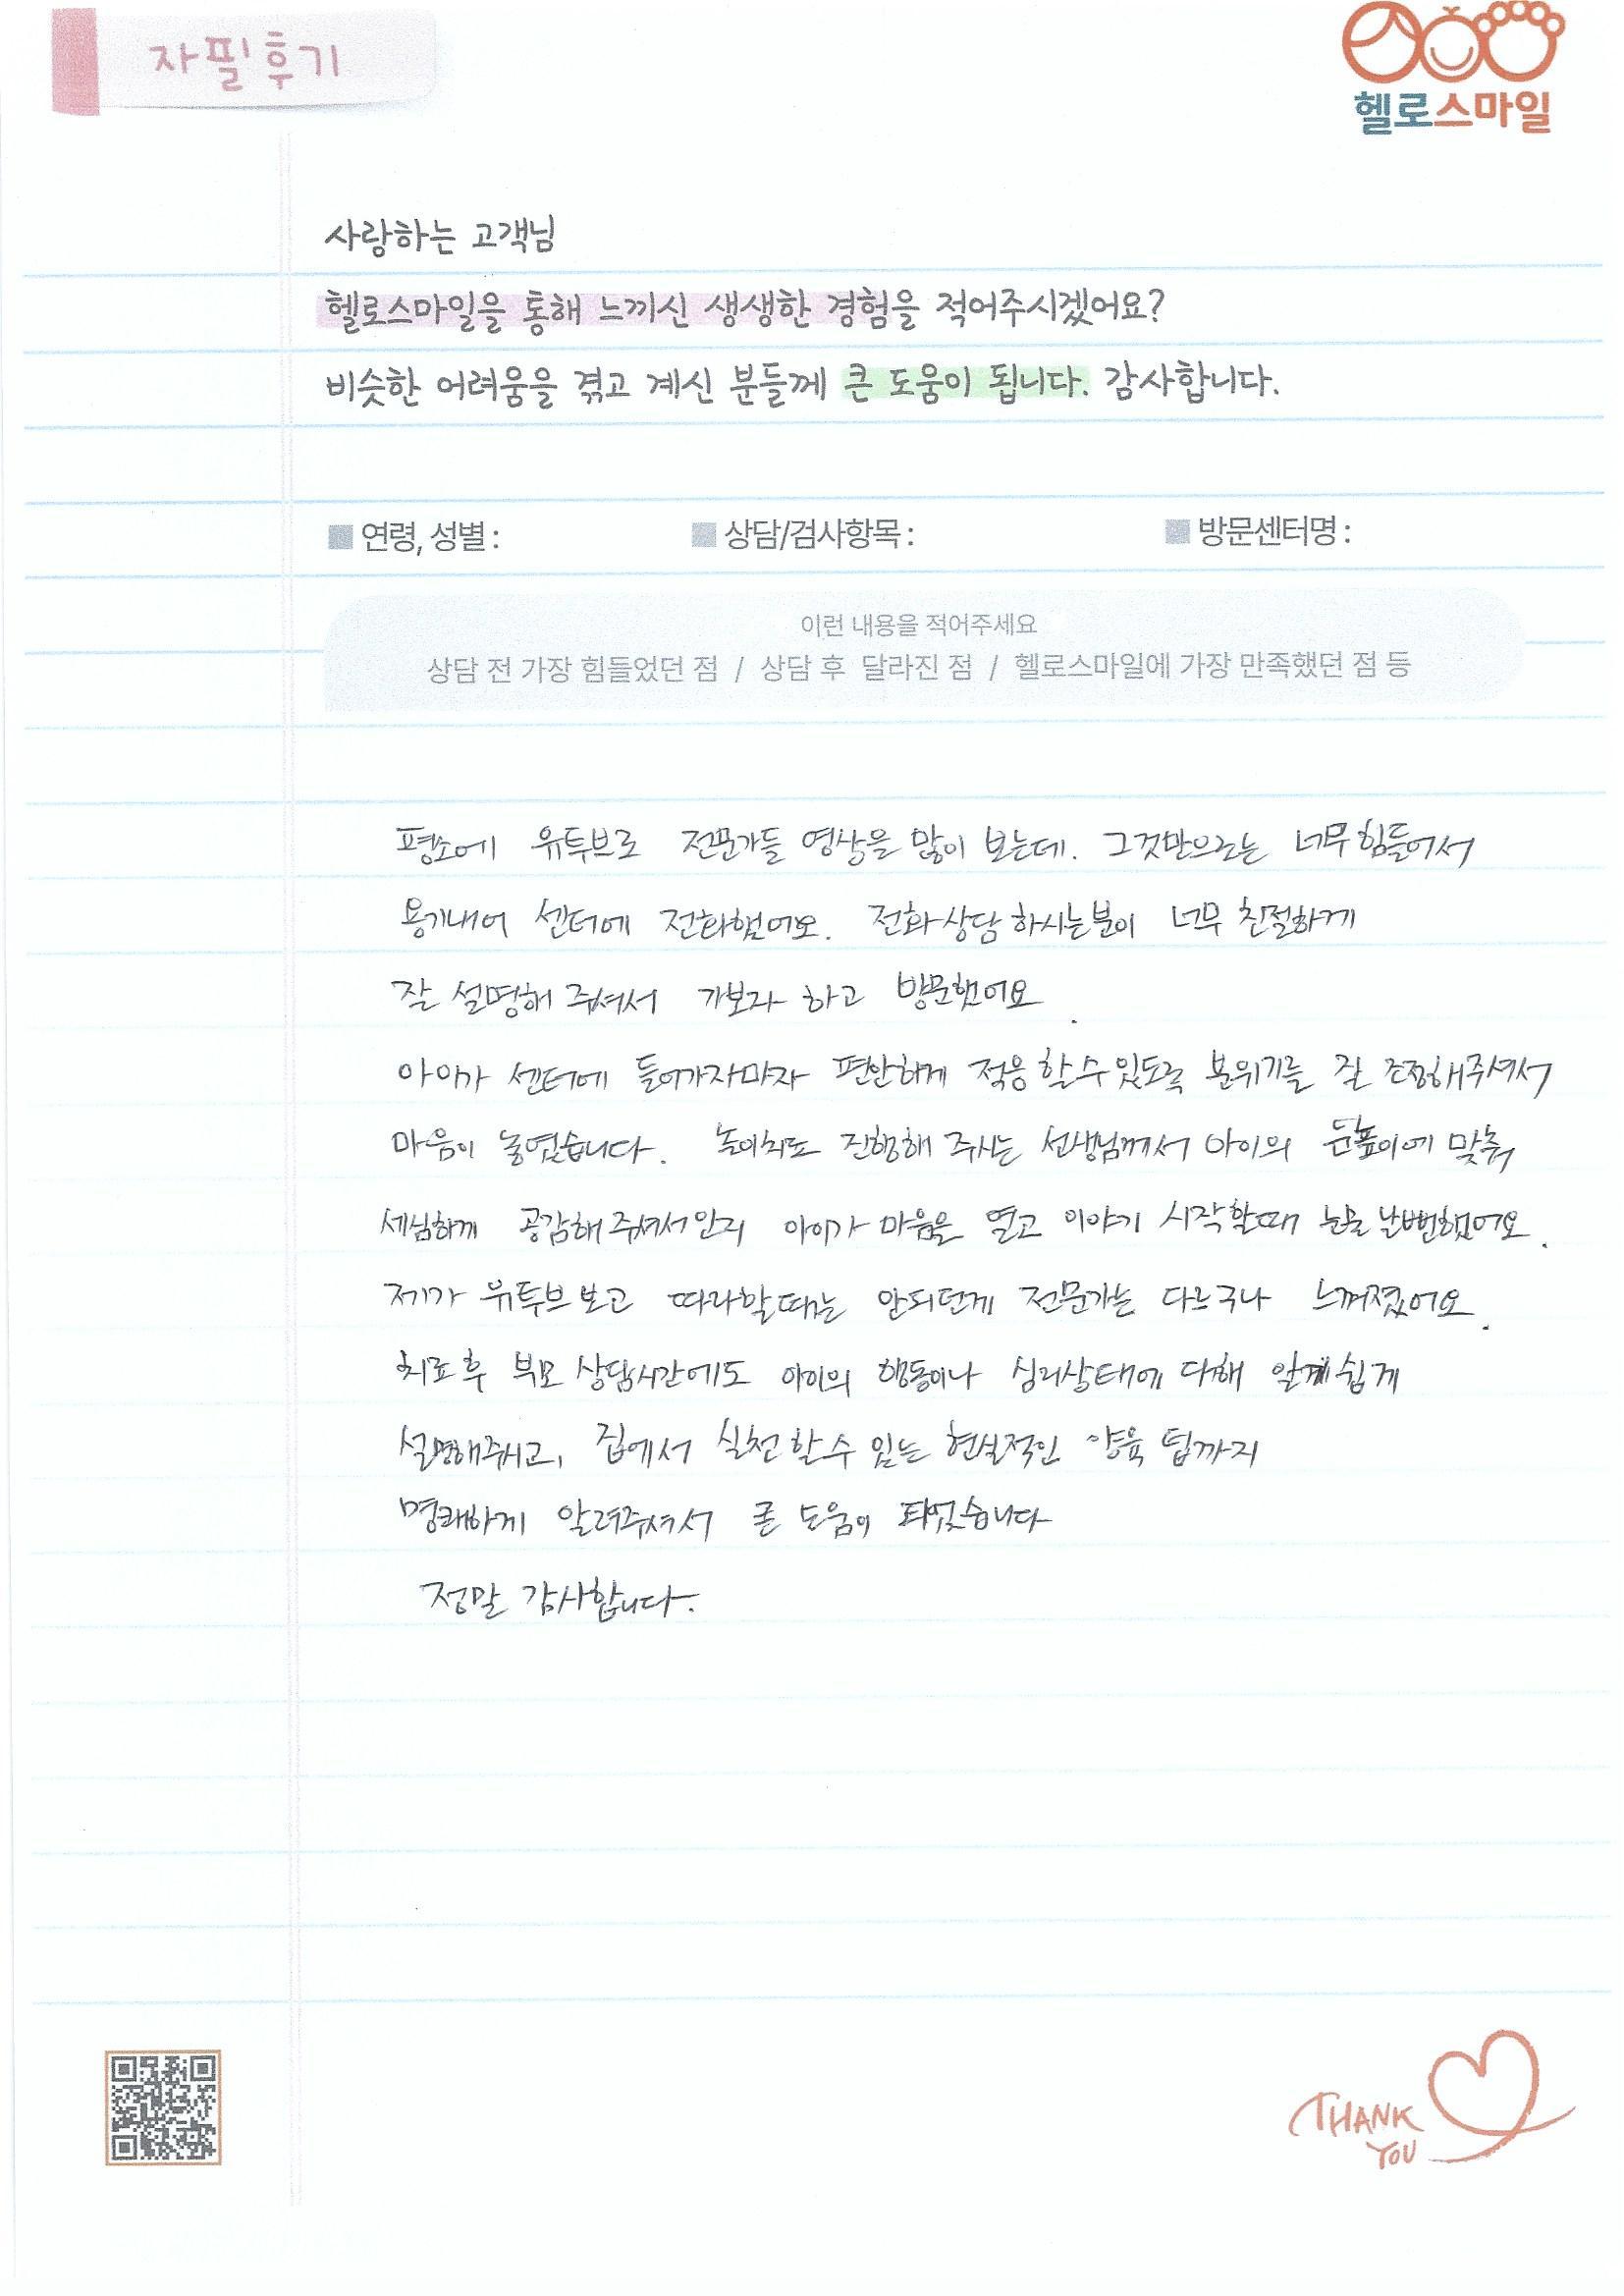 자필후기
헬로스마일
사랑하는 고객님
헬로스마일을 통해 느끼신 생생한 경험을 적어주시겠어요?
비슷한 어려움을 겪고 계신 분들께 큰 도움이 됩니다. 감사합니다.
연령, 성별 : 상담/검사항목 : 방문센터명 :
이런 내용을 적어주세요
상담 전 가장 힘들었던 점 / 상담 후 달라진 점 / 헬로스마일에 가장 만족했던 점 등
평소에 유투브로 전문가들 영상을 많이 보는데. 그것만으로는 너무 힘들어서
용기내어 센터에 전화했어요. 전화상담 하시는분이 너무 친절하게
잘 설명해 주셔서 가보자 하고 방문했어요.
아이가 센터에 들어가자마자 편안하게 적응 할수 있도록 분위기를 잘 조정해주셔서
마음이 놓였습니다. 놀이치료 진행해 주시는 선생님께서 아이의 눈높이에 맞춰
세심하게 공감해 주셔서인지 아이가 마음을 열고 이야기 시작할때 눈물 날뻔했어요.
제가 유투브 보고 따라할때는 안되던게 전문가는 다르구나 느껴졌어요.
치료 후 부모 상담시간에도 아이의 행동이나 심리상태에 대해 알기 쉽게
설명해주시고, 집에서 실천 할수 있는 현실적인 양육 팁까지
명쾌하게 알려주셔서 큰 도움이 되었습니다
정말 감사합니다.
THANK
YOU